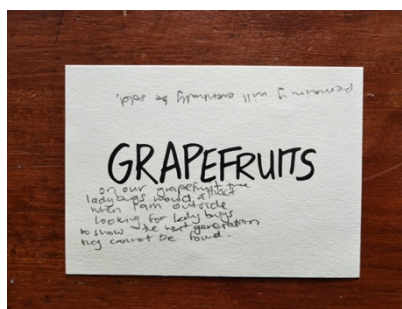 will eventually be sold.
GRAPEFRUITS
on our grapefruit tree
ladybugs would attract
when I am outside
looking for lady bugs
to show the next generation
they cannot be found.